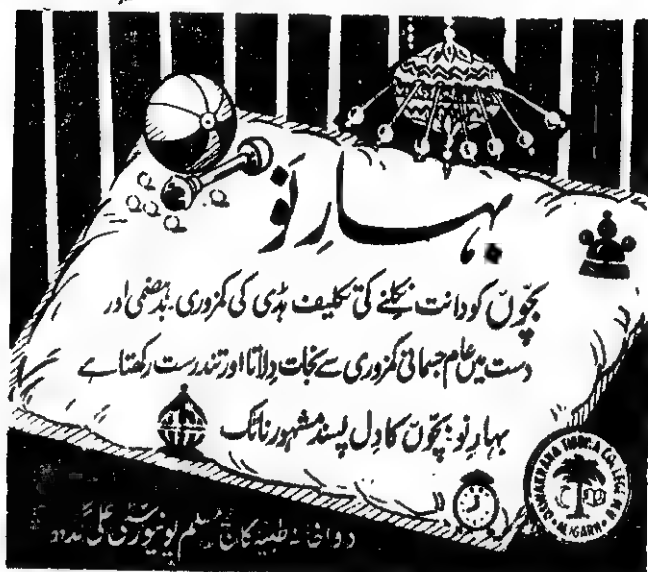 بہارِ نَو
بچّوں کو دانت نکلنے کی تکلیف ہڈی کی کمزوری. بدہضمی اور
دست میں عام جسمانی کمزوری سے نجات دلاتا اور تندرست رکھتا ہے
بہارِ نو: بچّوں کا دِل پسند مشہور ٹانک
DAWAKHANA TIBBIYA COLLEGE
ALIGARH
دواخانہ طبیہ کالج مسلم یونیورسٹی علی گڑھ